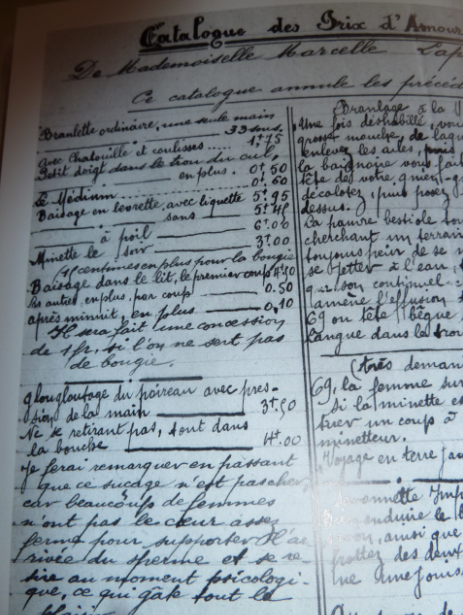 Catalogue des Prix d'Amour
De Mademoiselle Marcelle Lap
Ce catalogue annule les précéd
Branlette ordinaire, une seule main
33 sous.
avec Chatouille et coulisses 1f.75
Petit doigt dans le trou du cul,
en plus. 0f.50
Le Médium 0f.60
Baisage en levrette, avec liquette 5f.95
sans 5f.45
à poil 6f.00
Minette le soir 3f.00
centimes en plus pour la bougie
Baisage dans le lit, le premier coup 4f.40
les autres, en plus, par coup 0.50
après minuit, en plus 0,10
Il sera fait une concession
de 1 fr, si l'on ne sert pas
de bougie.
glougloutage du poireau avec pres-
sion de la main 3f.50
Ne se retirant pas, tout dans
la bouche 4f.00
Je ferai remarquer en passant
que ce suçage n'est pas cher
car beaucoup de femmes
n'ont pas le cœur assez
ferme pour supporter l'ar
rivée du sperme et se re-
tire au moment psicologi-
que, ce qui gâte tout le
Branlage à la
Une fois déshabillé, vou
grosse mouche, de laqu
enlevez les ailes, puis
la baignoire vous fait
tête de votre
décalotez, puis posez
dessus.
La pauvre bestiole tou
cherchant un terrain
toujours peur de se n
se jetter à l'eau,
son continuel
amène l'effusion
69 ou tête bêche
langue dans le trou
(très deman
69, la femme sur
Si la minette es
tirer un coup à
minetteur.
Voyage en terre jau
Savonnette Imp
enduire le
ainsi que
frottez des deux